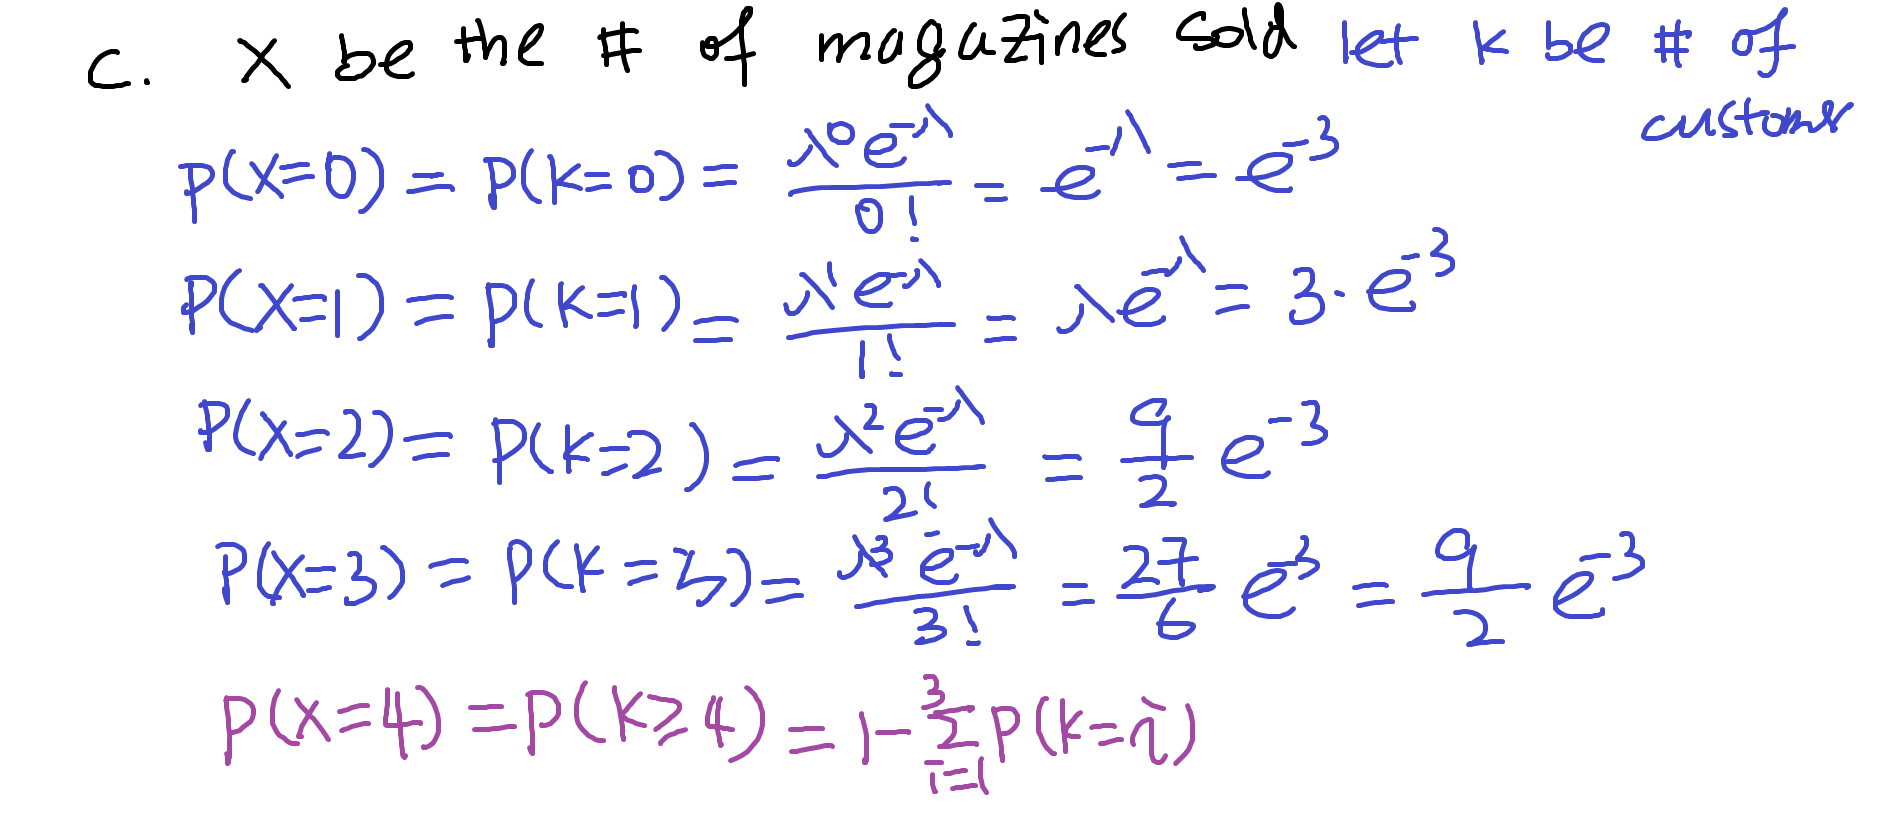 c. X be the # of magazines sold let k be # of
customr
P(X=0) = P(k=0) = λ⁰e^-λ / 0! = e^-λ = e^-3
P(X=1) = P(k=1) = λ¹e^-λ / 1! = λe^-λ = 3·e^-3
P(X=2) = P(k=2) = λ²e^-λ / 2! = 9/2 e^-3
P(X=3) = P(k=3) = λ³e^-λ / 3! = 27/6 e^-3 = 9/2 e^-3
P(X=4) = P(k≥4) = 1-∑_{i=1}^{3} P(k=i)